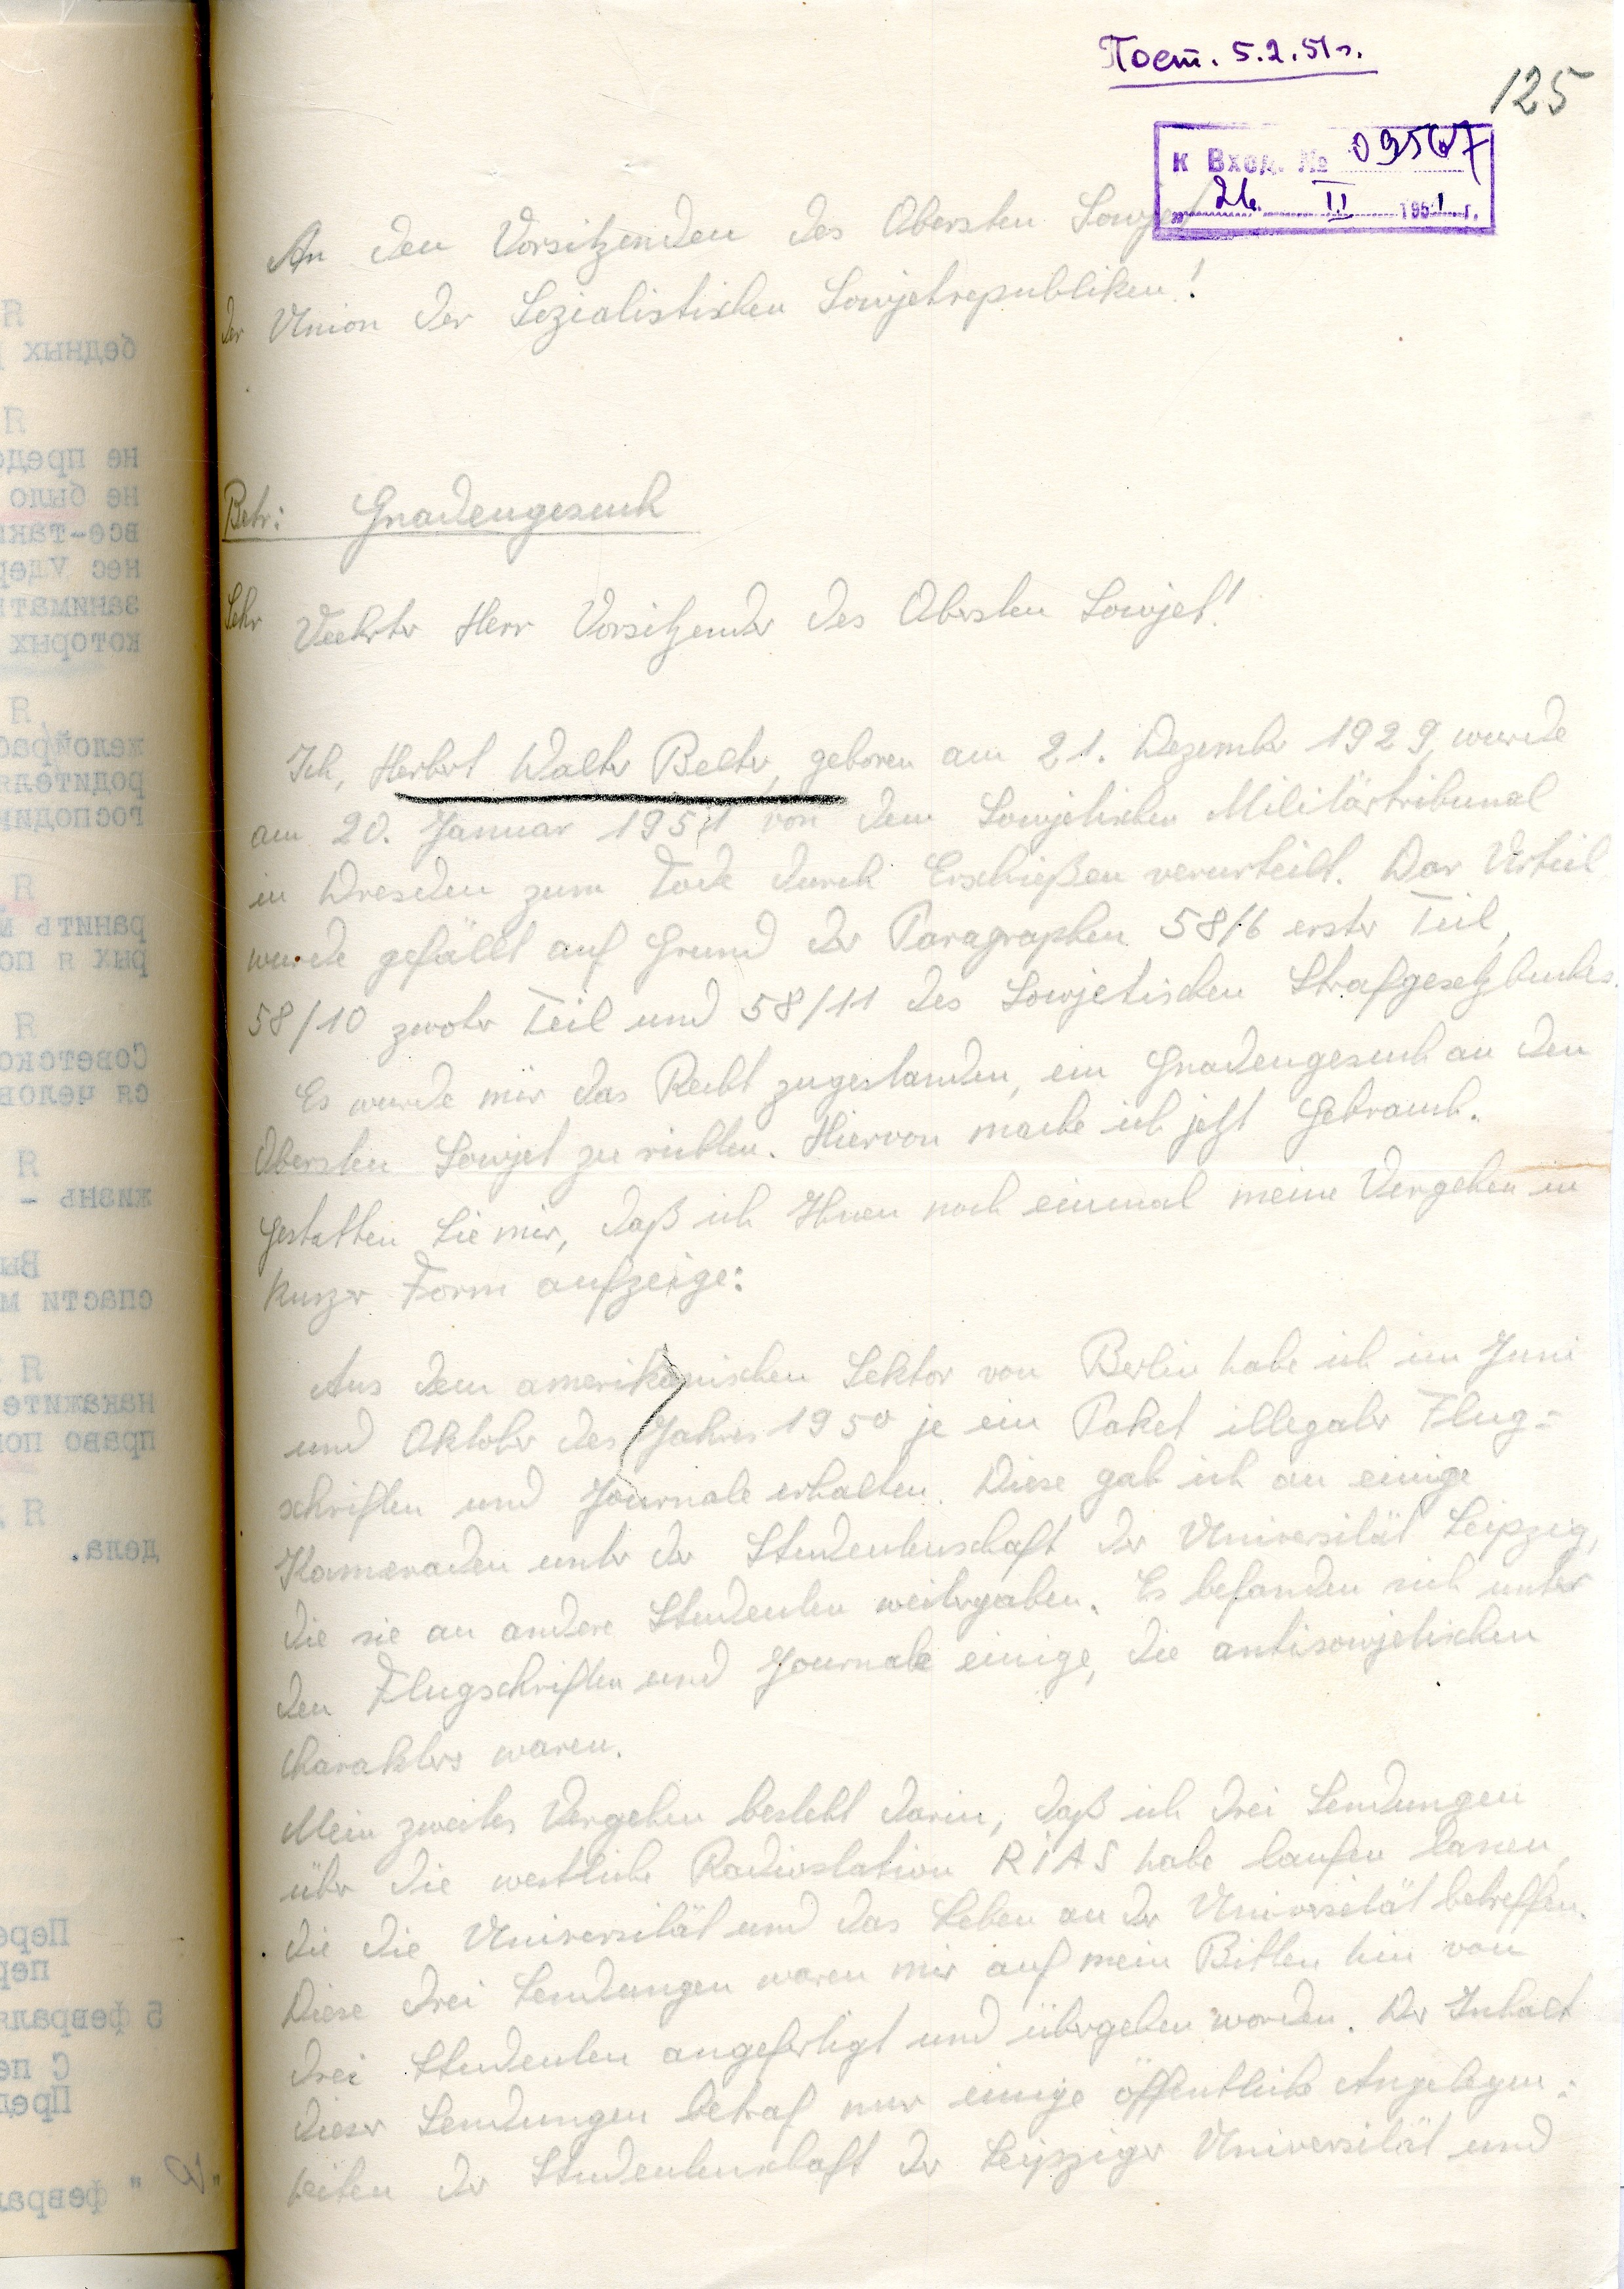 Пост. 5.2.51г.
125
к Вход. №
" 26. " II 1951 г.
An den Vorsitzenden des Obersten Sowjet
der Union der Sozialistischen Sowjetrepubliken!
Betr: Gnadengesuch
Sehr Verehrter Herr Vorsitzender des Obersten Sowjet!
Ich, Herbert Walter Belter, geboren am 21. Dezember 1929, wurde
am 20. Januar 1951 von dem Sowjetischen Militärtribunal
in Dresden zum Tode durch Erschießen verurteilt. Das Urteil
wurde gefällt auf Grund der Paragraphen 58/6 erster Teil,
58/10 zwoter Teil und 58/11 des Sowjetischen Strafgesetzbuches.
Es wurde mir das Recht zugestanden, ein Gnadengesuch an den
Obersten Sowjet zu richten. Hiervon mache ich jetzt Gebrauch.
Gestatten Sie mir, daß ich Ihnen noch einmal meine Vergehen in
kurzer Form aufzeige:
Aus dem amerikanischen Sektor von Berlin habe ich im Juni
und Oktober des Jahres 1950 je ein Paket illegaler Flug=
schriften und Journale erhalten. Diese gab ich an einige
Kameraden unter der Studentenschaft der Universität Leipzig,
die sie an andere Studenten weitergaben. Es befanden sich unter
den Flugschriften und Journale einige, die antisowjetischen
Charakters waren.
Mein zweites Vergehen besteht darin, daß ich drei Sendungen
über die westliche Radiostation RIAS habe laufen lassen,
die die Universität und das Leben an der Universität betreffen.
Diese drei Sendungen waren mir auf mein Bitten hin von
drei Studenten angefertigt und übergeben worden. Der Inhalt
dieser Sendungen betraf nur einige öffentliche Angelegen=
heiten der Studentenschaft der Leipziger Universität und